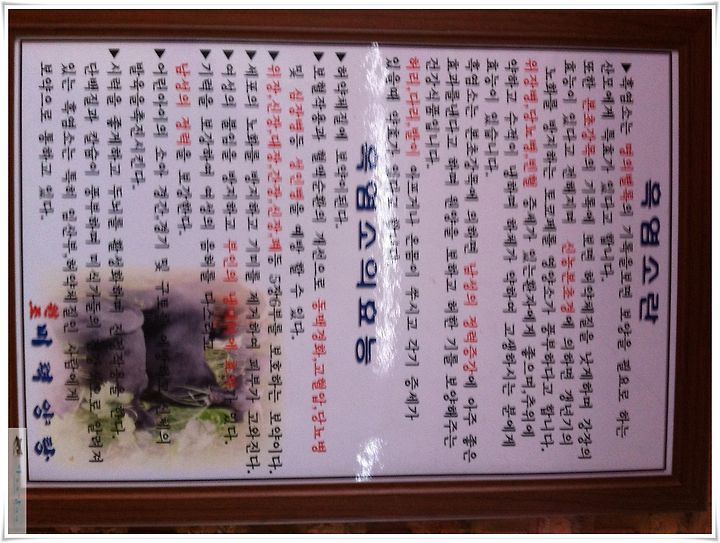 흑염소란
▶흑염소는 명의별록의 기록을보면 보양을 필요로 하는
산모에게 특효가 있다고 합니다.
또한 본초강목의 기록에 보면 허약체질을 낫게하며 강장의
효능이 있다고 전해지며 신농본초경에 의하면 갱년기의
노화를 방지하는 토코페롤 영양소가 풍부하다고 합니다.
위장병,당뇨병,빈혈 증세가 있는환자에게 좋으며,추위에
약하고 수족이 냉하며 하체가 약하여 고생하시는 분에게
효능이 있습니다.
흑염소는 본초강목에 의하면 남성의 정력증강에 아주 좋은
효과를낸다고 하며 원양을 보하고 허한 기를 보양해주는
건강식품입니다.
허리,다리,팔이 아프거나 온몸이 쑤시고 감기 증세가
있을때 약효가 있다고 합니다
흑염소의효능
▶허약체질에 보약이된다.
▶보혈작용과 혈액순환의 개선으로 동맥경화,고혈압,당뇨병
및 심장병등 성인병을 예방 할 수 있다.
▶위장,신장,대장,간장,심장,폐등 5장6부를 보호하는 보약이다.
▶세포의 노화를 방지하고 기미를 제거하며 피부가 고와진다.
▶여성의 불임을 방지하고 부인의 냉대하에 효력이 있다.
▶기력을 보강하며 여성의 음허를 다스리고
남성의 정력을 보강한다.
▶어린아이의 소아 경간,경기 및 구토를 신체의
발육을촉진시킨다.
▶시력을 좋게하고 두뇌를 활성화하며 진정작용을 한다.
단백질과 칼슘이 풍부하며 미식가들의 으로 알려져
있는 흑염소는 특히 임산부,허약체질인 사람에게
보약으로 통하고 있다.
원조 벽화양탕